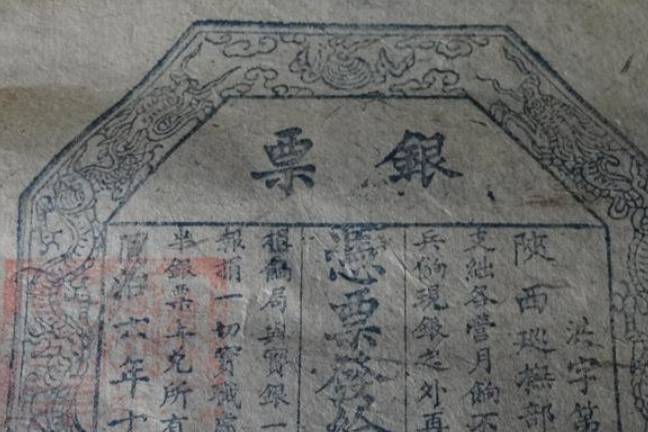 銀票
洪字第
陝西巡撫部
支絀各營月餉不
兵餉現銀之外再
憑票發給
糧餉局與實銀一
報捐一切實職
半銀票上兌所有
同治六年十